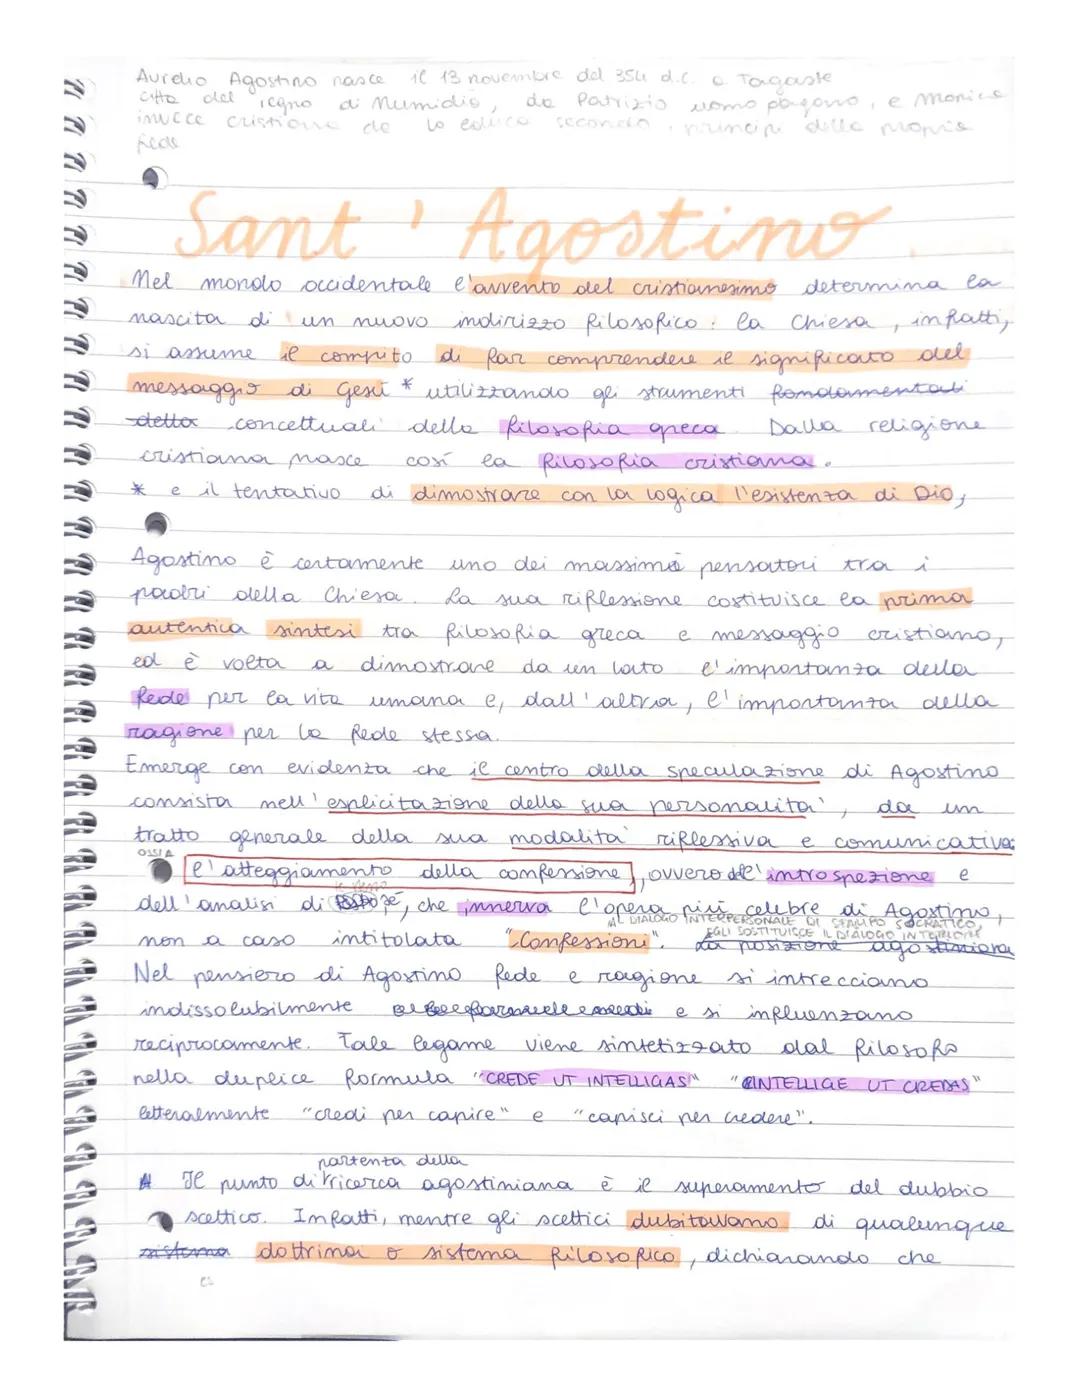 Aurelio Agostino nasce il 13 novembre del 354 d.C. a Tagaste
città del regno di Numidia, da Patrizio uomo pagano, e Monica
invece cristiana che lo educa secondo i principi della propria
fede
Sant'Agostino
Nel mondo occidentale l'avvento del cristianesimo determina la
nascita di un nuovo indirizzo filosofico: la Chiesa, infatti,
si assume il compito di far comprendere il significato del
messaggio di Gesù * utilizzando gli strumenti fondamentali
della concettuali della filosofia greca. Dalla religione
cristiana nasce così la filosofia cristiana.
* e il tentativo di dimostrare con la logica l'esistenza di Dio,
Agostino è certamente uno dei massimi pensatori tra i
padri della Chiesa. La sua riflessione costituisce la prima
autentica sintesi tra filosofia greca e messaggio cristiano,
ed è volta a dimostrare da un lato l'importanza della
fede per la vita umana e, dall'altra, l'importanza della
ragione per la fede stessa.
Emerge con evidenza che il centro della speculazione di Agostino
consista nell'esplicitazione della sua personalità, da un
tratto generale della sua modalità riflessiva e comunicativa:
OSSIA
l'atteggiamento della confensione, ovvero dell'introspezione e
dell'analisi di sé, che innerva l'opera più celebre di Agostino,
AL DIALOGO INTERPERSONALE DI STAMPO SOCRATICO,
EGLI SOSTITUISCE IL DIALOGO INTERIORE
non a caso intitolata "Confessioni". La posizione agostiniana
Nel pensiero di Agostino fede e ragione si intrecciano
indissolubilmente e si influenzano
reciprocamente. Tale legame viene sintetizzato dal filosofo
nella duplice formula "CREDE UT INTELLIGAS" "INTELLIGE UT CREDAS"
letteralmente "credi per capire" e "capisci per credere".
partenza della
Il punto di ricerca agostiniana è il superamento del dubbio
scettico. Infatti, mentre gli scettici dubitavano di qualunque
sistema dottrina o sistema filosofico, dichiarando che